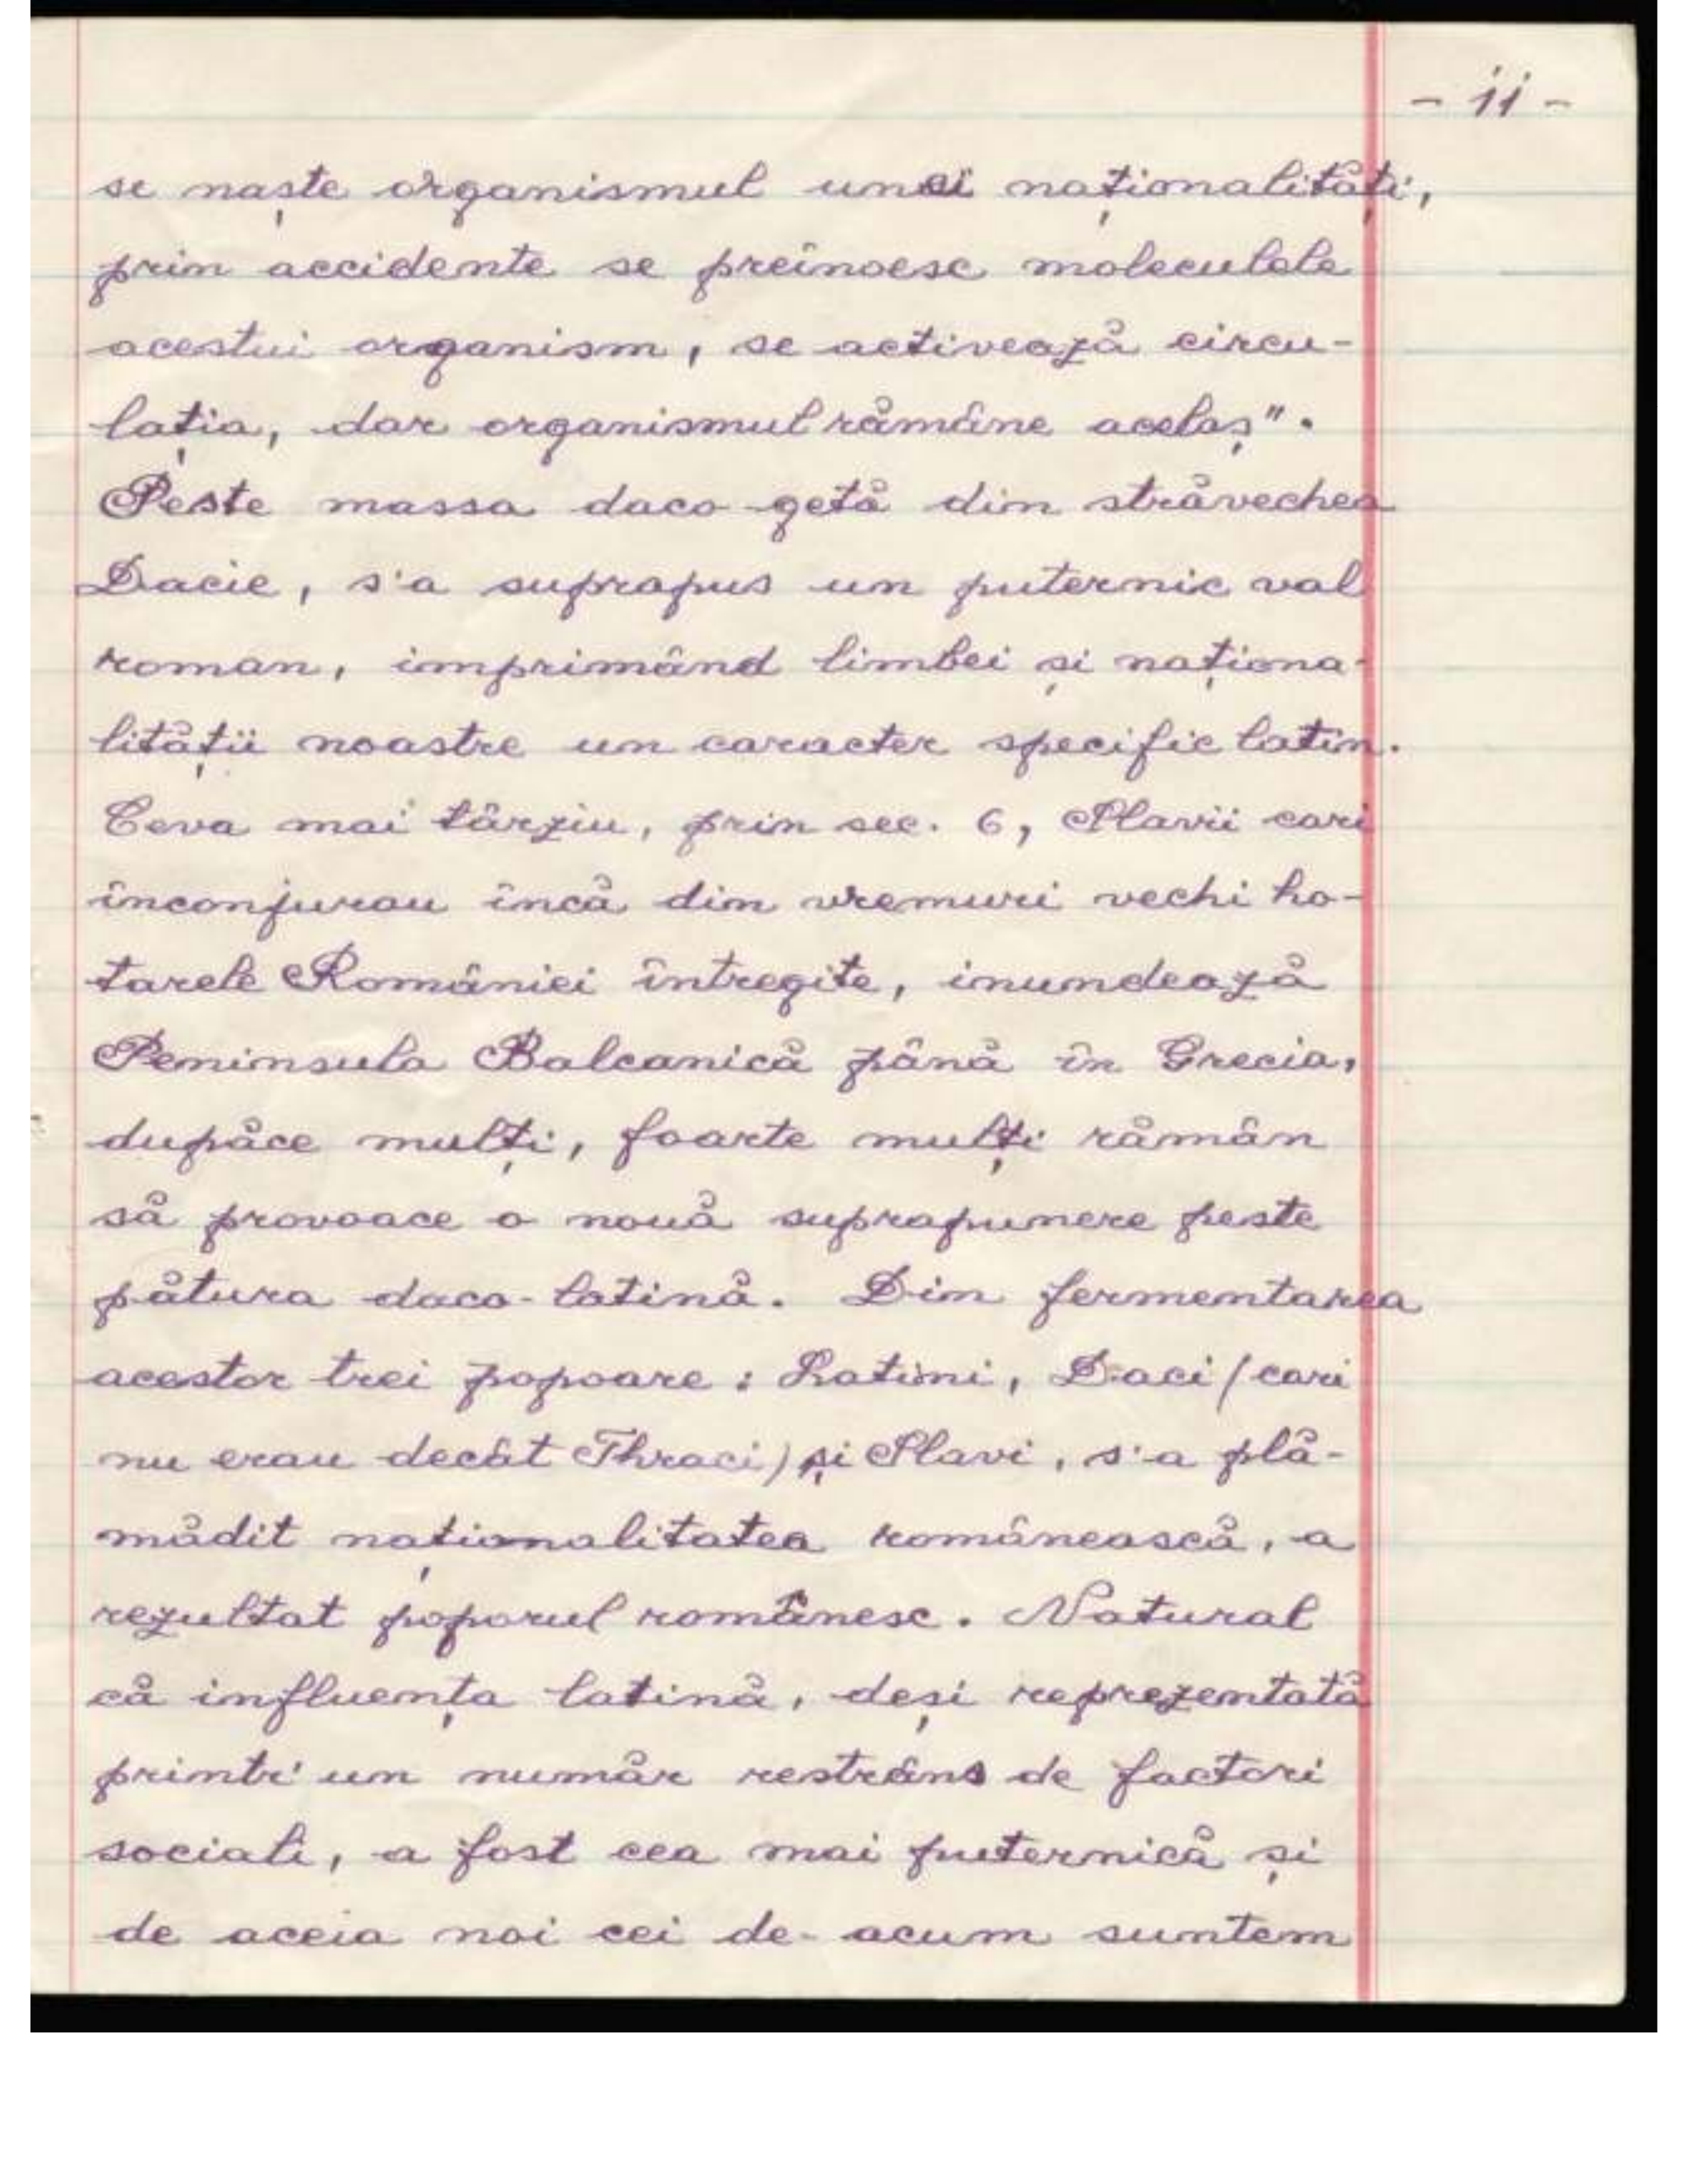 - ii -
se naște organismul unei naționalități,
prin accidente se preînoesc moleculele
acestui organism, se activează circu-
lația, dar organismul rămâne acelaș".
Peste massa daco-getă din străvechea
Dacie, s'a suprapus un puternic val
roman, imprimând limbei și naționa-
lității noastre un caracter specific latin.
Ceva mai târziu, prin sec. 6, Slavii cari
înconjurau încă din vremuri vechi ho-
tarele României întregite, inundează
Peninsula Balcanică până în Grecia,
dupăce mulți, foarte mulți rămân
să provoace o nouă suprapunere peste
pătura daco-latină. Din fermentarea
acestor trei popoare: Latini, Daci (cari
nu erau decât Thraci) și Slavi, s'a plă-
mădit naționalitatea românească, a
rezultat poporul românesc. Natural
că influența latină, deși reprezentată
printr'un număr restrâns de factori
sociali, a fost cea mai puternică și
de aceia noi cei de-acum suntem